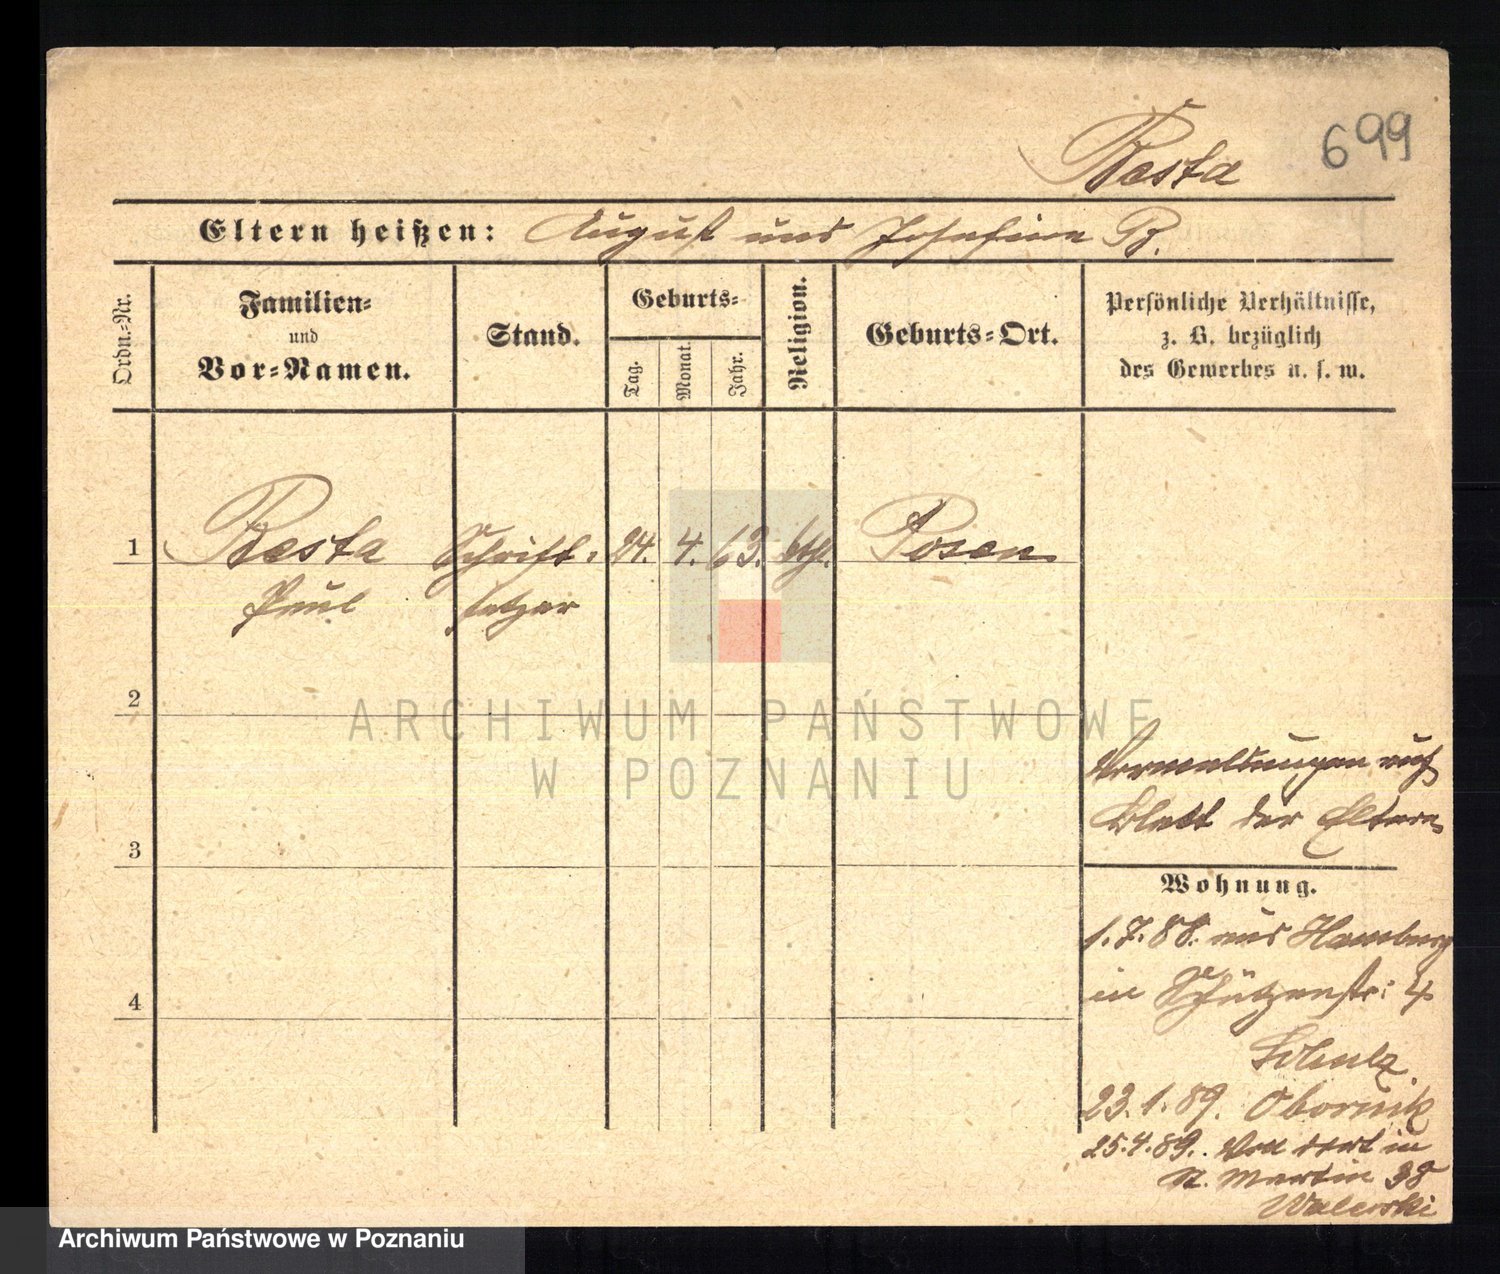 Besta 699
Eltern heißen: August und Josefine B.
Ordn.-Nr.
Familien-
und
Vor-Namen.
Stand.
Geburts-
Tag.
Monat.
Jahr.
Religion.
Geburts-Ort.
Persönliche Verhältnisse,
z. B. bezüglich
des Gewerbes u. s. w.
1 Besta Schrift- 24. 4. 63. kthl. Posen
Paul setzer
2
3
4
Vermeldungen auf
Blatt der Eltern
Wohnung.
1.7.88. aus Hamburg
in Schützenstr: 4
Schulz
23.1.89. Obornik
25.4.89. Von dort in
St. Martin 38
Walerski
ARCHIWUM PAŃSTWOWE
W POZNANIU
Archiwum Państwowe w Poznaniu